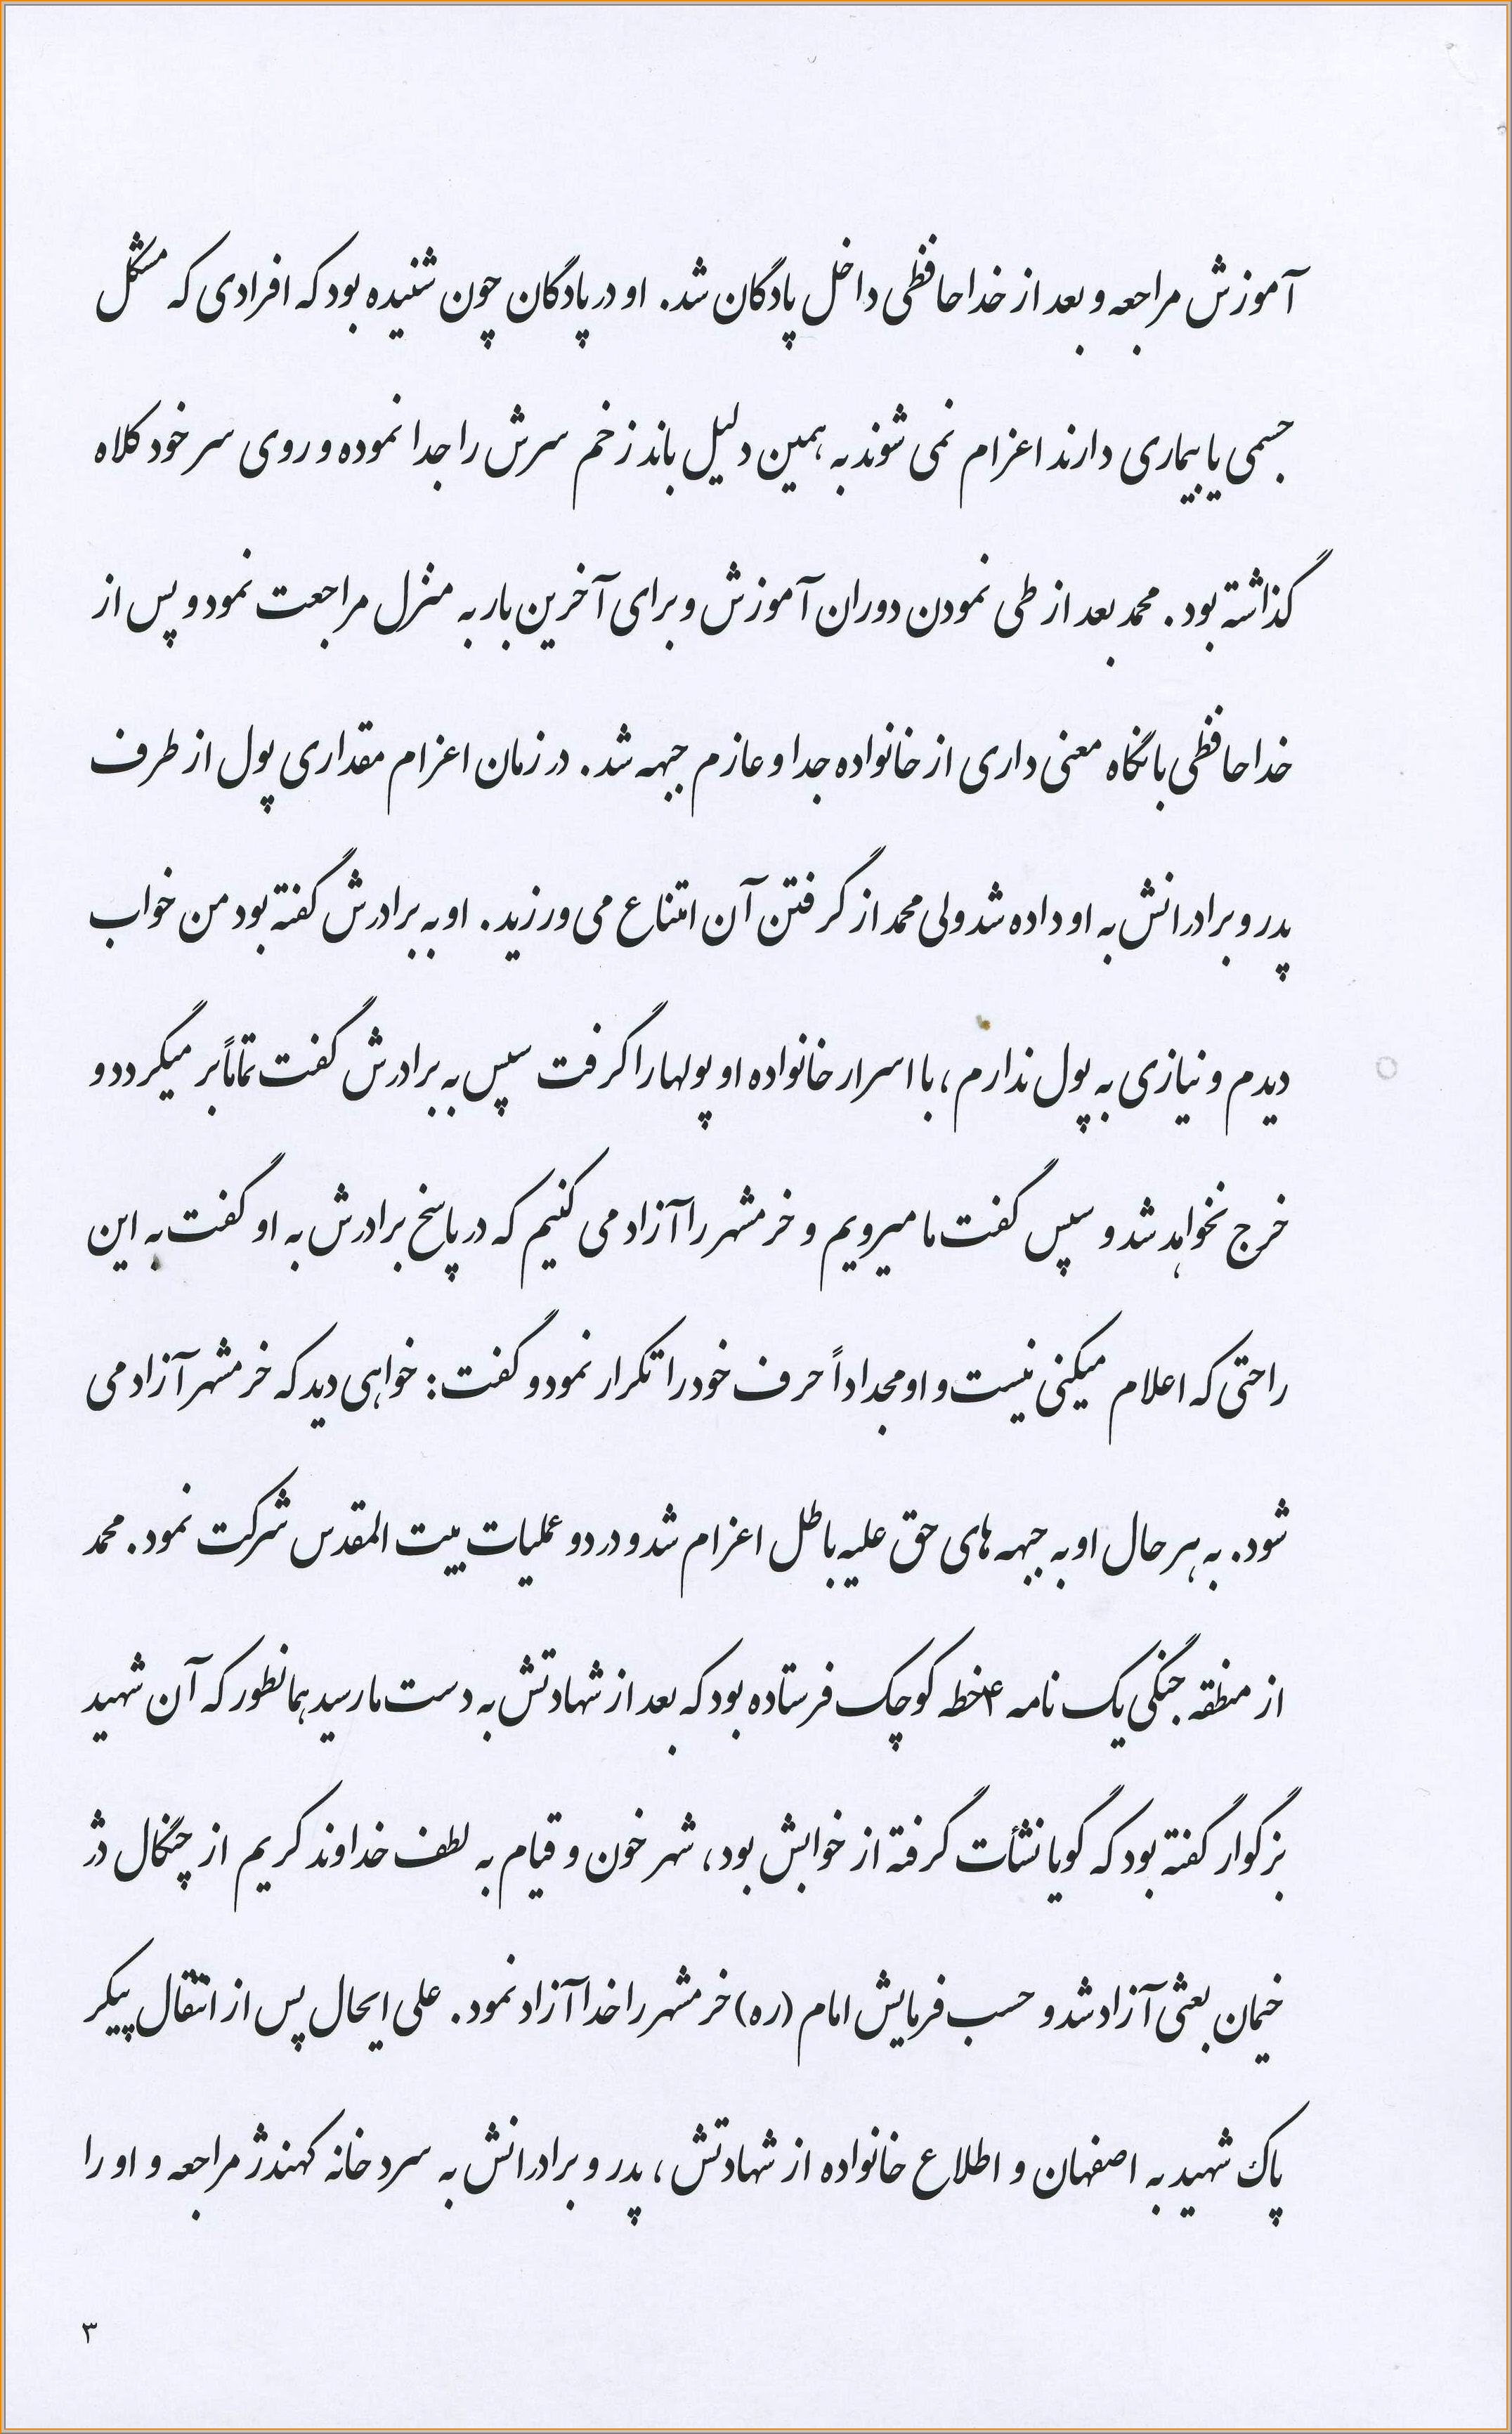 آموزش مراجعه و بعد از خداحافظی داخل پادگان شد. او در پادگان چون شنیده بود که افرادی که مشکل
جسمی یا بیماری دارند اعزام نمی شوند به همین دلیل باند زخم سرش را جدا نموده و روی سر خود کلاه
گذاشته بود. محمد بعد از طی نمودن دوران آموزش و برای آخرین بار به منزل مراجعت نمود و پس از
خداحافظی با نگاه معنی داری از خانواده جدا و عازم جبهه شد. در زمان اعزام مقداری پول از طرف
پدر و برادرانش به او داده شد ولی محمد از گرفتن آن امتناع می ورزید. او به برادرش گفته بود من خواب
دیدم و نیازی به پول ندارم، با اسرار خانواده او پولها را گرفت سپس به برادرش گفت تماماً بر میگردد و
خرج نخواهد شد و سپس گفت ما میرویم و خرمشهر را آزاد می کنیم که در پاسخ برادرش به او گفت به این
راحتی که اعلام میکنی نیست و او مجدداً حرف خود را تکرار نمود و گفت: خواهی دید که خرمشهر آزاد می
شود. به هر حال او به جبهه های حق علیه باطل اعزام شد و در دو عملیات بیت المقدس شرکت نمود. محمد
از منطقه جنگی یک نامه ۴خطه کوچک فرستاده بود که بعد از شهادتش به دست ما رسید همانطور که آن شهید
بزگوار گفته بود که گویا نشأت گرفته از خوابش بود، شهر خون و قیام به لطف خداوند کریم از چنگال دژ
خیمان بعثی آزاد شد و حسب فرمایش امام (ره) خرمشهر را خدا آزاد نمود. علی ایحال پس از انتقال پیکر
پاک شهید به اصفهان و اطلاع خانواده از شهادتش، پدر و برادرانش به سردخانه کهندژ مراجعه و او را
۳